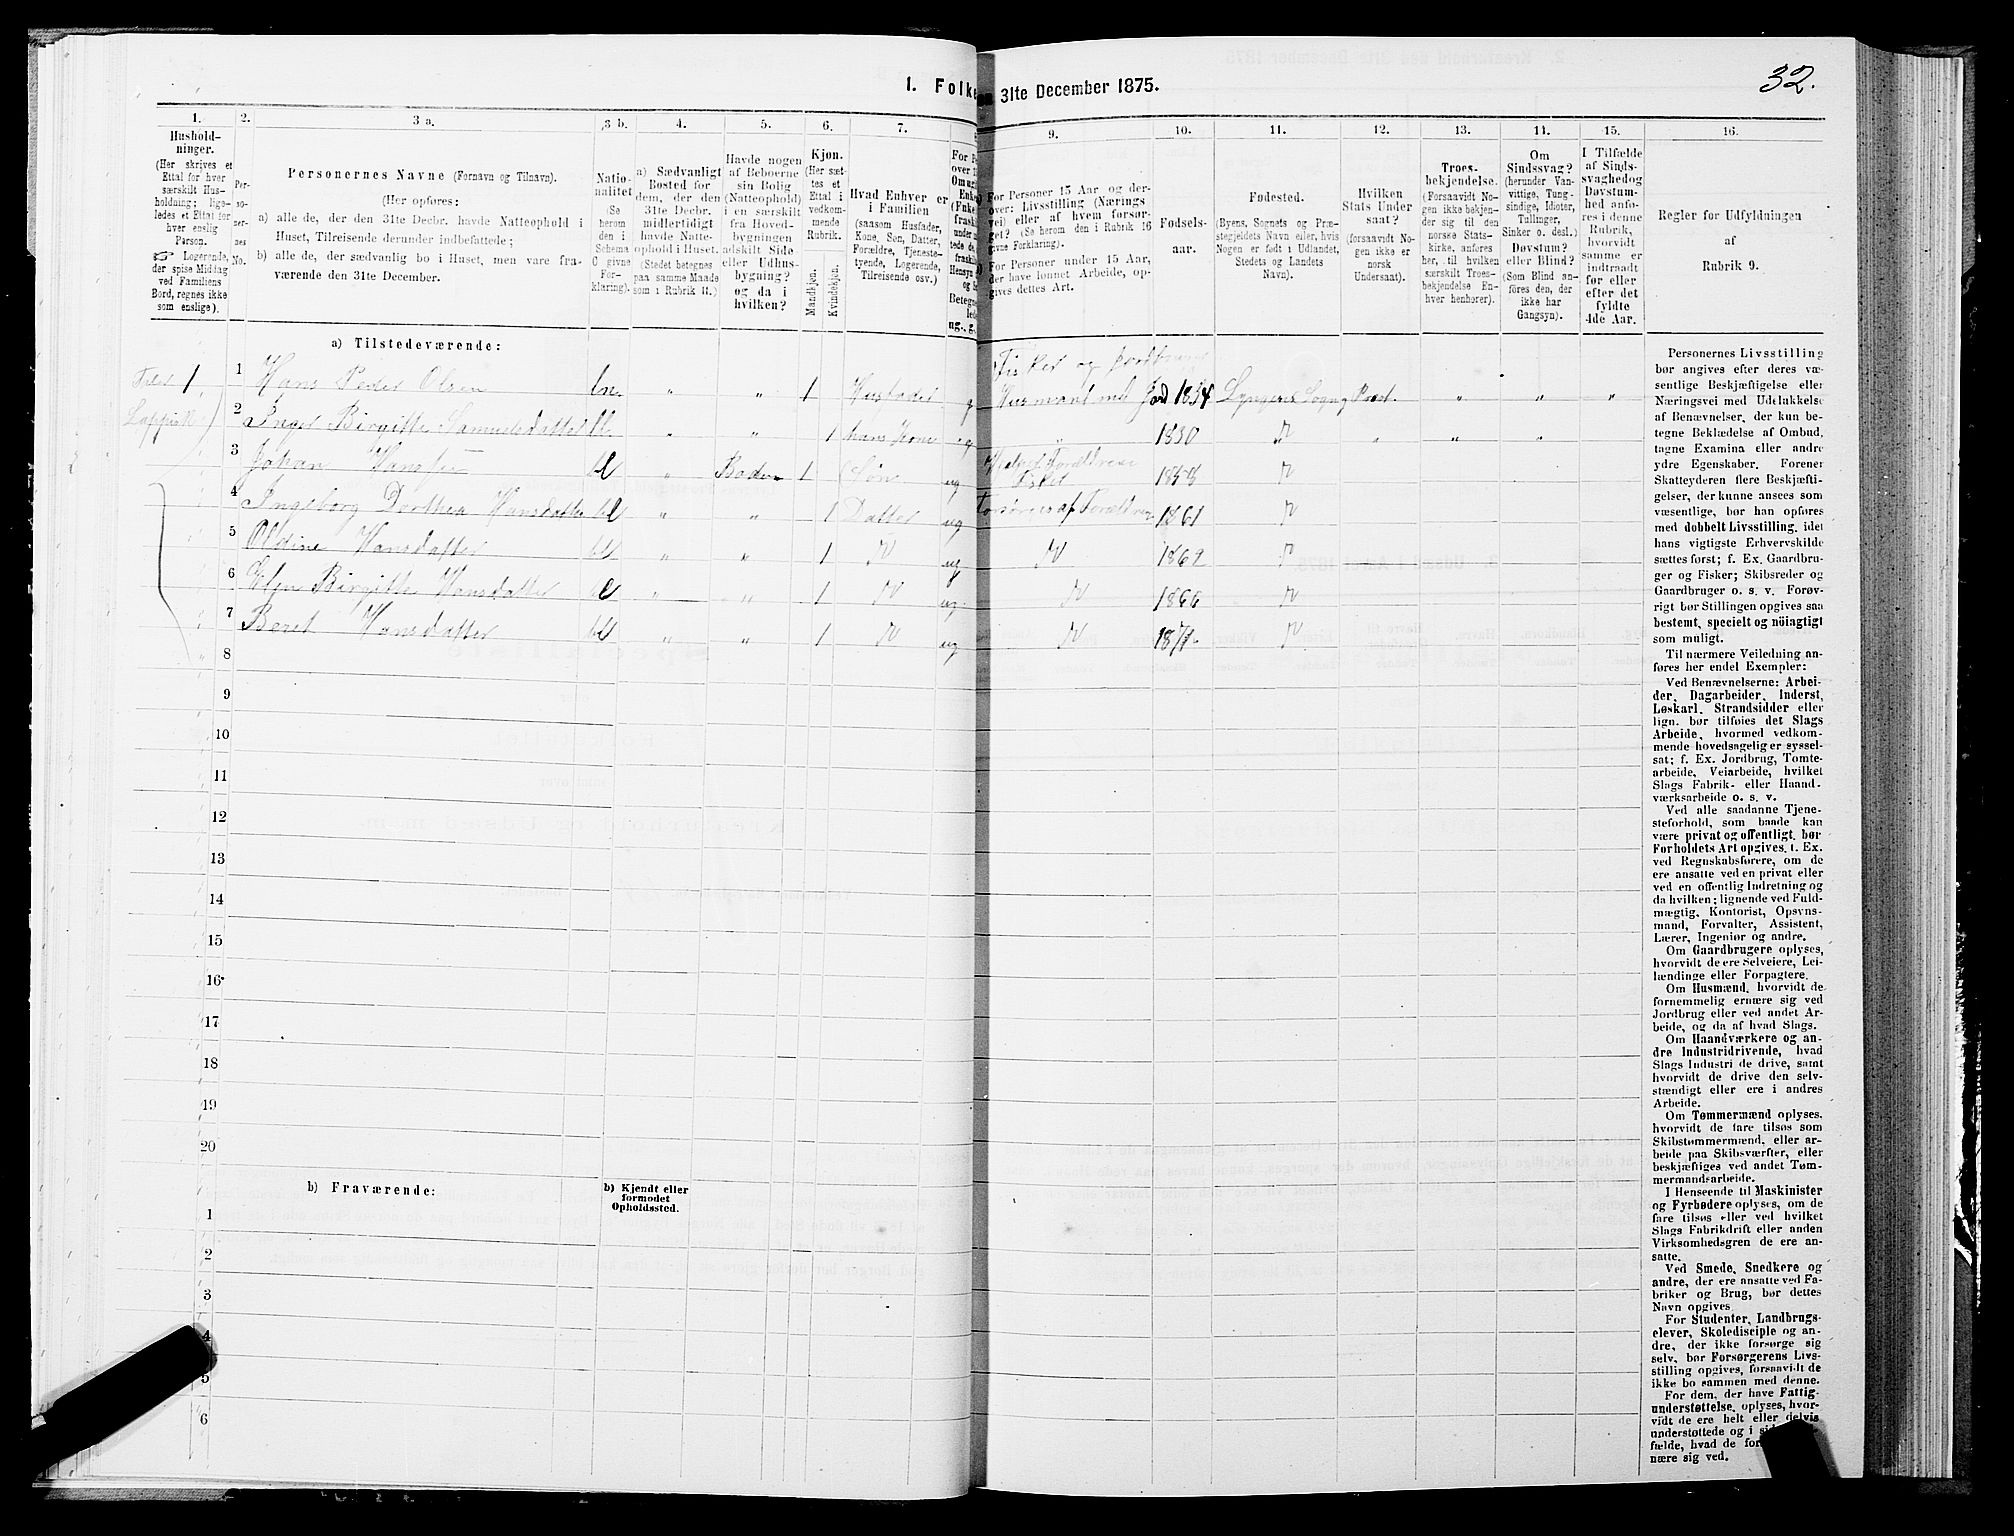 1. Folke
en 31te December 1875.
32.
1.
Hushold-
ninger.
(Her skrives et
Ettal for hver
særskilt Hus-
holdning; lige-
ledes et Ettal for
hver enslig
Person.
☞ Logerende,
der spise Middag
ved Familiens
Bord, regnes ikke
som enslige).
2.
Per-
so-
ner-
nes
No.
3 a.
Personernes Navne (Fornavn og Tilnavn).
(Her opføres:
a) alle de, der den 31te Decbr. havde Natteophold i
Huset, Tilreisende derunder indbefattede;
b) alle de, der sædvanlig bo i Huset, men vare fra-
værende den 31te December.
3 b.
Natio-
nalitet
(Se
herom
den i
Schema
C givne
For-
klaring).
4.
a) Sædvanligt
Bosted for
dem, der den
31te Decbr.
midlertidigt
havde Natte-
ophold i Huset.
(Stedet betegnes
paa samme Maade
som i Rubrik 11.)
5.
Havde nogen
af Beboerne
sin Bolig
(Natteophold)
i en særskilt
fra Hoved-
bygningen
adskilt Side
eller Udhus-
bygning?
og da i
hvilken?
6.
Kjøn.
(Her sæt-
tes et
Ettal i
vedkom-
mende
Rubrik.
Mandkjøn.
Kvindekjøn.
7.
Hvad Enhver er
i Familien
(saasom Husfader,
Kone, Søn, Datter,
Forældre, Tjeneste-
tyende, Logerende,
Tilreisende osv.)
9.
For Personer 15 Aar og der-
over: Livsstilling (Nærings
vei) eller af hvem forsør-
get? (Se herom den i Rubrik 16
givne Forklaring).
For Personer under 15 Aar,
der have lønnet Arbeide, op-
gives dettes Art.
10.
Fødsels-
aar.
11.
Fødested.
(Byens, Sognets og Præ-
stegjeldets Navn eller, hvis
Nogen er født i Udlandet,
Stedets og Landets
Navn).
12.
Hvilken
Stats Under
saat?
(forsaavidt No-
gen ikke er
norsk
Undersaat).
13.
Troes-
bekjendelse.
(Forsaavidt No-
gen ikke bekjen-
der sig til den
norske Stats-
kirke, anføres
her, til hvilken
særskilt Troes-
bekjendelse En-
hver henhører).
14.
Om
Sindssvag?
(herunder Van-
vittige, Tung-
sindige, Idioter,
Tullinger,
Sinker o. desl.)
Døvstum?
eller Blind?
(Som Blind an-
føres den, der
ikke har
Gangsyn).
15.
I Tilfælde
af Sinds-
svaghed og
Døvstum-
hed anfø-
res i denne
Rubrik,
hvorvidt
samme er
indtraadt
før eller
efter det
fyldte
4de Aar.
16.
Regler for Udfyldningen
af
Rubrik 9.
a) Tilstedeværende:
1 1 Hans Peder Olsen " " 1 Husfader g Fisker og Jordbruger
Husmand med Jord 1834 Lyngens Sogn og Præst. " " "
2 Inger Birgitte Samuelsdatter " " 1 hans Kone g " 1830 " " "
3 Johan Hansen " Boden 1 Søn ug Hjelper Forældrene
Fisker 1858
4 Ingeborg Dorthea Hansdatter " " 1 Datter ug Forsørges af Forældrene 1861
5 Oldine Hansdatter " " 1 ug 1862
6 Elen Birgitte Hansdatter " " 1 ug 1866
7 Beret Hansdatter " " 1 ug 1871
8
9
10
11
12
13
14
15
16
17
18
19
20
b) Fraværende:
b) Kjendt eller
formodet
Opholdssted.
1
2
3
4
5
6
Personernes Livsstilling
bør angives efter deres væ-
sentlige Beskjæftigelse eller
Næringsvei med Udelukkelse
af Benævnelser, der kun be-
tegne Beklædelse af Ombud,
tagne Examina eller andre
ydre Egenskaber. Forener
Skatteyderen flere Beskjæfti-
gelser, der kunne ansees som
væsentlige, bør han opføres
med dobbelt Livsstilling, idet
hans vigtigste Erhvervskilde
sættes først; f. Ex. Gaardbru-
ger og Fisker; Skibsreder og
Gaardbruger o. s. v. Forøv-
rigt bør Stillingen opgives saa
bestemt, specielt og nøiagtigt
som muligt.
Til nærmere Veiledning an-
føres her endel Exempler:
Ved Benævnelserne: Arbei-
der, Dagarbeider, Inderst,
Løskarl, Strandsidder eller
lign. bør tilføies det Slags
Arbeide, hvormed vedkom-
mende hovedsagelig er syssel-
sat; f. Ex. Jordbrug, Tomte-
arbeide, Veiarbeide, hvilket
Slags Fabrik- eller Haand-
værksarbeide o. s. v.
Ved alle saadanne Tjene-
steforhold, som baade kan
være privat og offentligt, bør
Forholdets Art opgives, f. Ex.
ved Regnskabsførere, om de
ere ansatte ved en privat eller
ved en offentlig Indretning og
da hvilken; lignende ved Fuld-
mægtig, Kontorist, Opsyns-
mand, Forvalter, Assistent,
Lærer, Ingeniør og andre.
Om Gaardbrugere oplyses,
hvorvidt de ere Selveiere, Lei-
lændinge eller Forpagtere.
Om Husmænd, hvorvidt de
fornemmelig ernære sig ved
Jordbrug eller ved andet Ar-
beide, og da af hvad Slags.
Om Haandværkere og an-
dre Industridrivende, hvad
Slags Industri de drive, samt
hvorvidt de drive den selv-
stændigt eller ere i andres
Arbeide.
Om Tømmermænd oplyses,
hvorvidt de fare tilsøs som
Skibstømmermænd, eller ar-
beide paa Skibsværfter, eller
beskjæftiges ved andet Tøm-
mermandsarbeide.
I Henseende til Maskinister
og Fyrbødere oplyses, om de
fare tilsøs eller ved hvilket
Slags Fabrikdrift eller anden
Virksomhedsgren de ere an-
satte.
Ved Smede, Snedkere og
andre, der ere ansatte ved Fa-
briker og Brug, bør dettes
Navn opgives.
For Studenter, Landbrugs-
elever, Skoledisciple og an-
dre, der ikke forsørge sig
selv, bør Forsørgerens Livs-
stilling opgives, forsaavidt de
ikke bo sammen med denne.
For dem, der have Fattig-
understøttelse, oplyses, hvor-
vidt de ere helt eller delvis
understøttede og i
fælde, hvad de
nære sig ved.